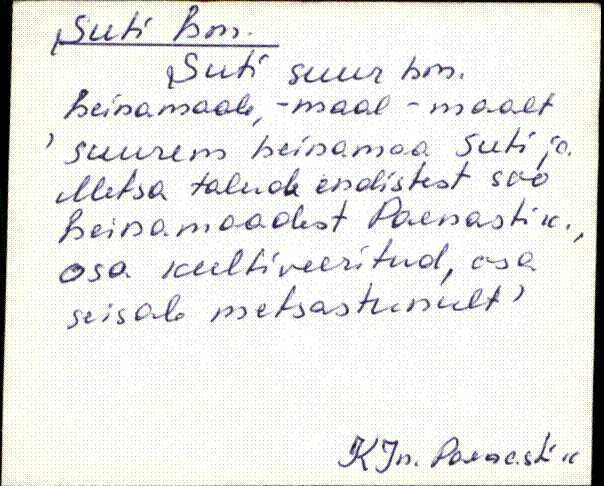 Suti hm.
Suti suur hm.
heinamaale, -maal -maalt
' suurem heinamaa Suti ja
Metsa talude endistest soo
heinamaadest Paenasti k.,
osa kultiveeritud, osa
seisab metsastunult '
KJn. Paenasti k